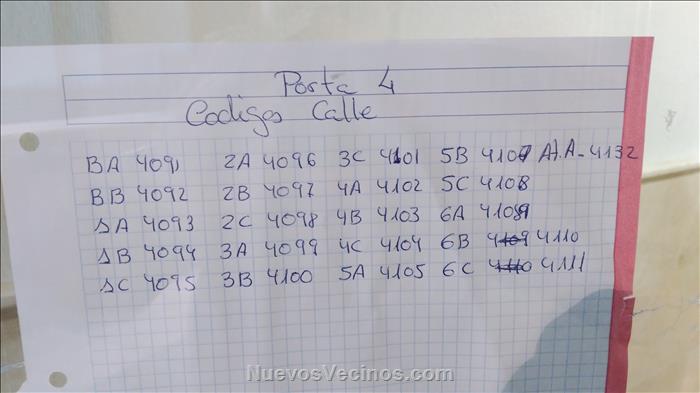 Porta 4
Codigos Calle
BA 4091 2A 4096 3C 4101 5B 4107 At.A-4132
BB 4092 2B 4097 4A 4102 5C 4108
1A 4093 2C 4098 4B 4103 6A 4109
1B 4094 3A 4099 4C 4104 6B 4109 4110
1C 4095 3B 4100 5A 4105 6C 4110 4111
NuevosVecinos.com